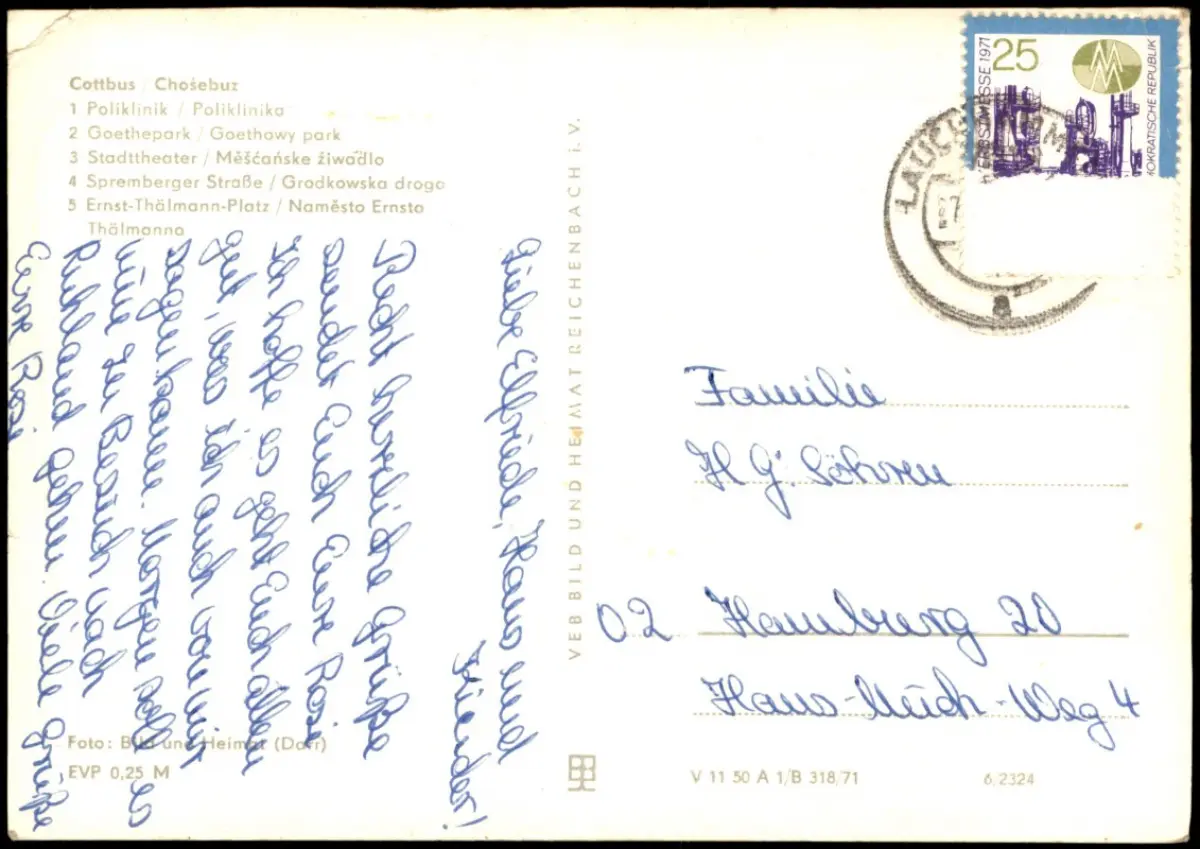 Cottbus / Chośebuz
1 Poliklinik / Poliklinika
2 Goethepark / Goethowy park
3 Stadttheater / Měšćańske źiwadło
4 Spremberger Straße / Grodkowska droga
5 Ernst-Thälmann-Platz / Naměsto Ernsta
Thälmanna
Liebe Elfriede, Hans und
Kinder!
Recht herzliche Grüße
sendet Euch Eure Rosi
Ich hoffe es geht Euch allen
gut, was ich auch von mir
sagen kann. Morgen soll es
zu Besuch nach
Ruhland gehn. Viele Grüße
Eure Rosi
Foto: Bild und Heimat (Darr)
EVP 0,25 M
VEB BILD UND HEIMAT REICHENBACH i. V.
25
MM
HERBSTMESSE 1971
DEMOKRATISCHE REPUBLIK
LAUCHHAMM
a
Familie
H G. Söhren
02 Hamburg 20
Hans-Much-Weg 4
V 11 50 A 1/B 318/71
6/2324